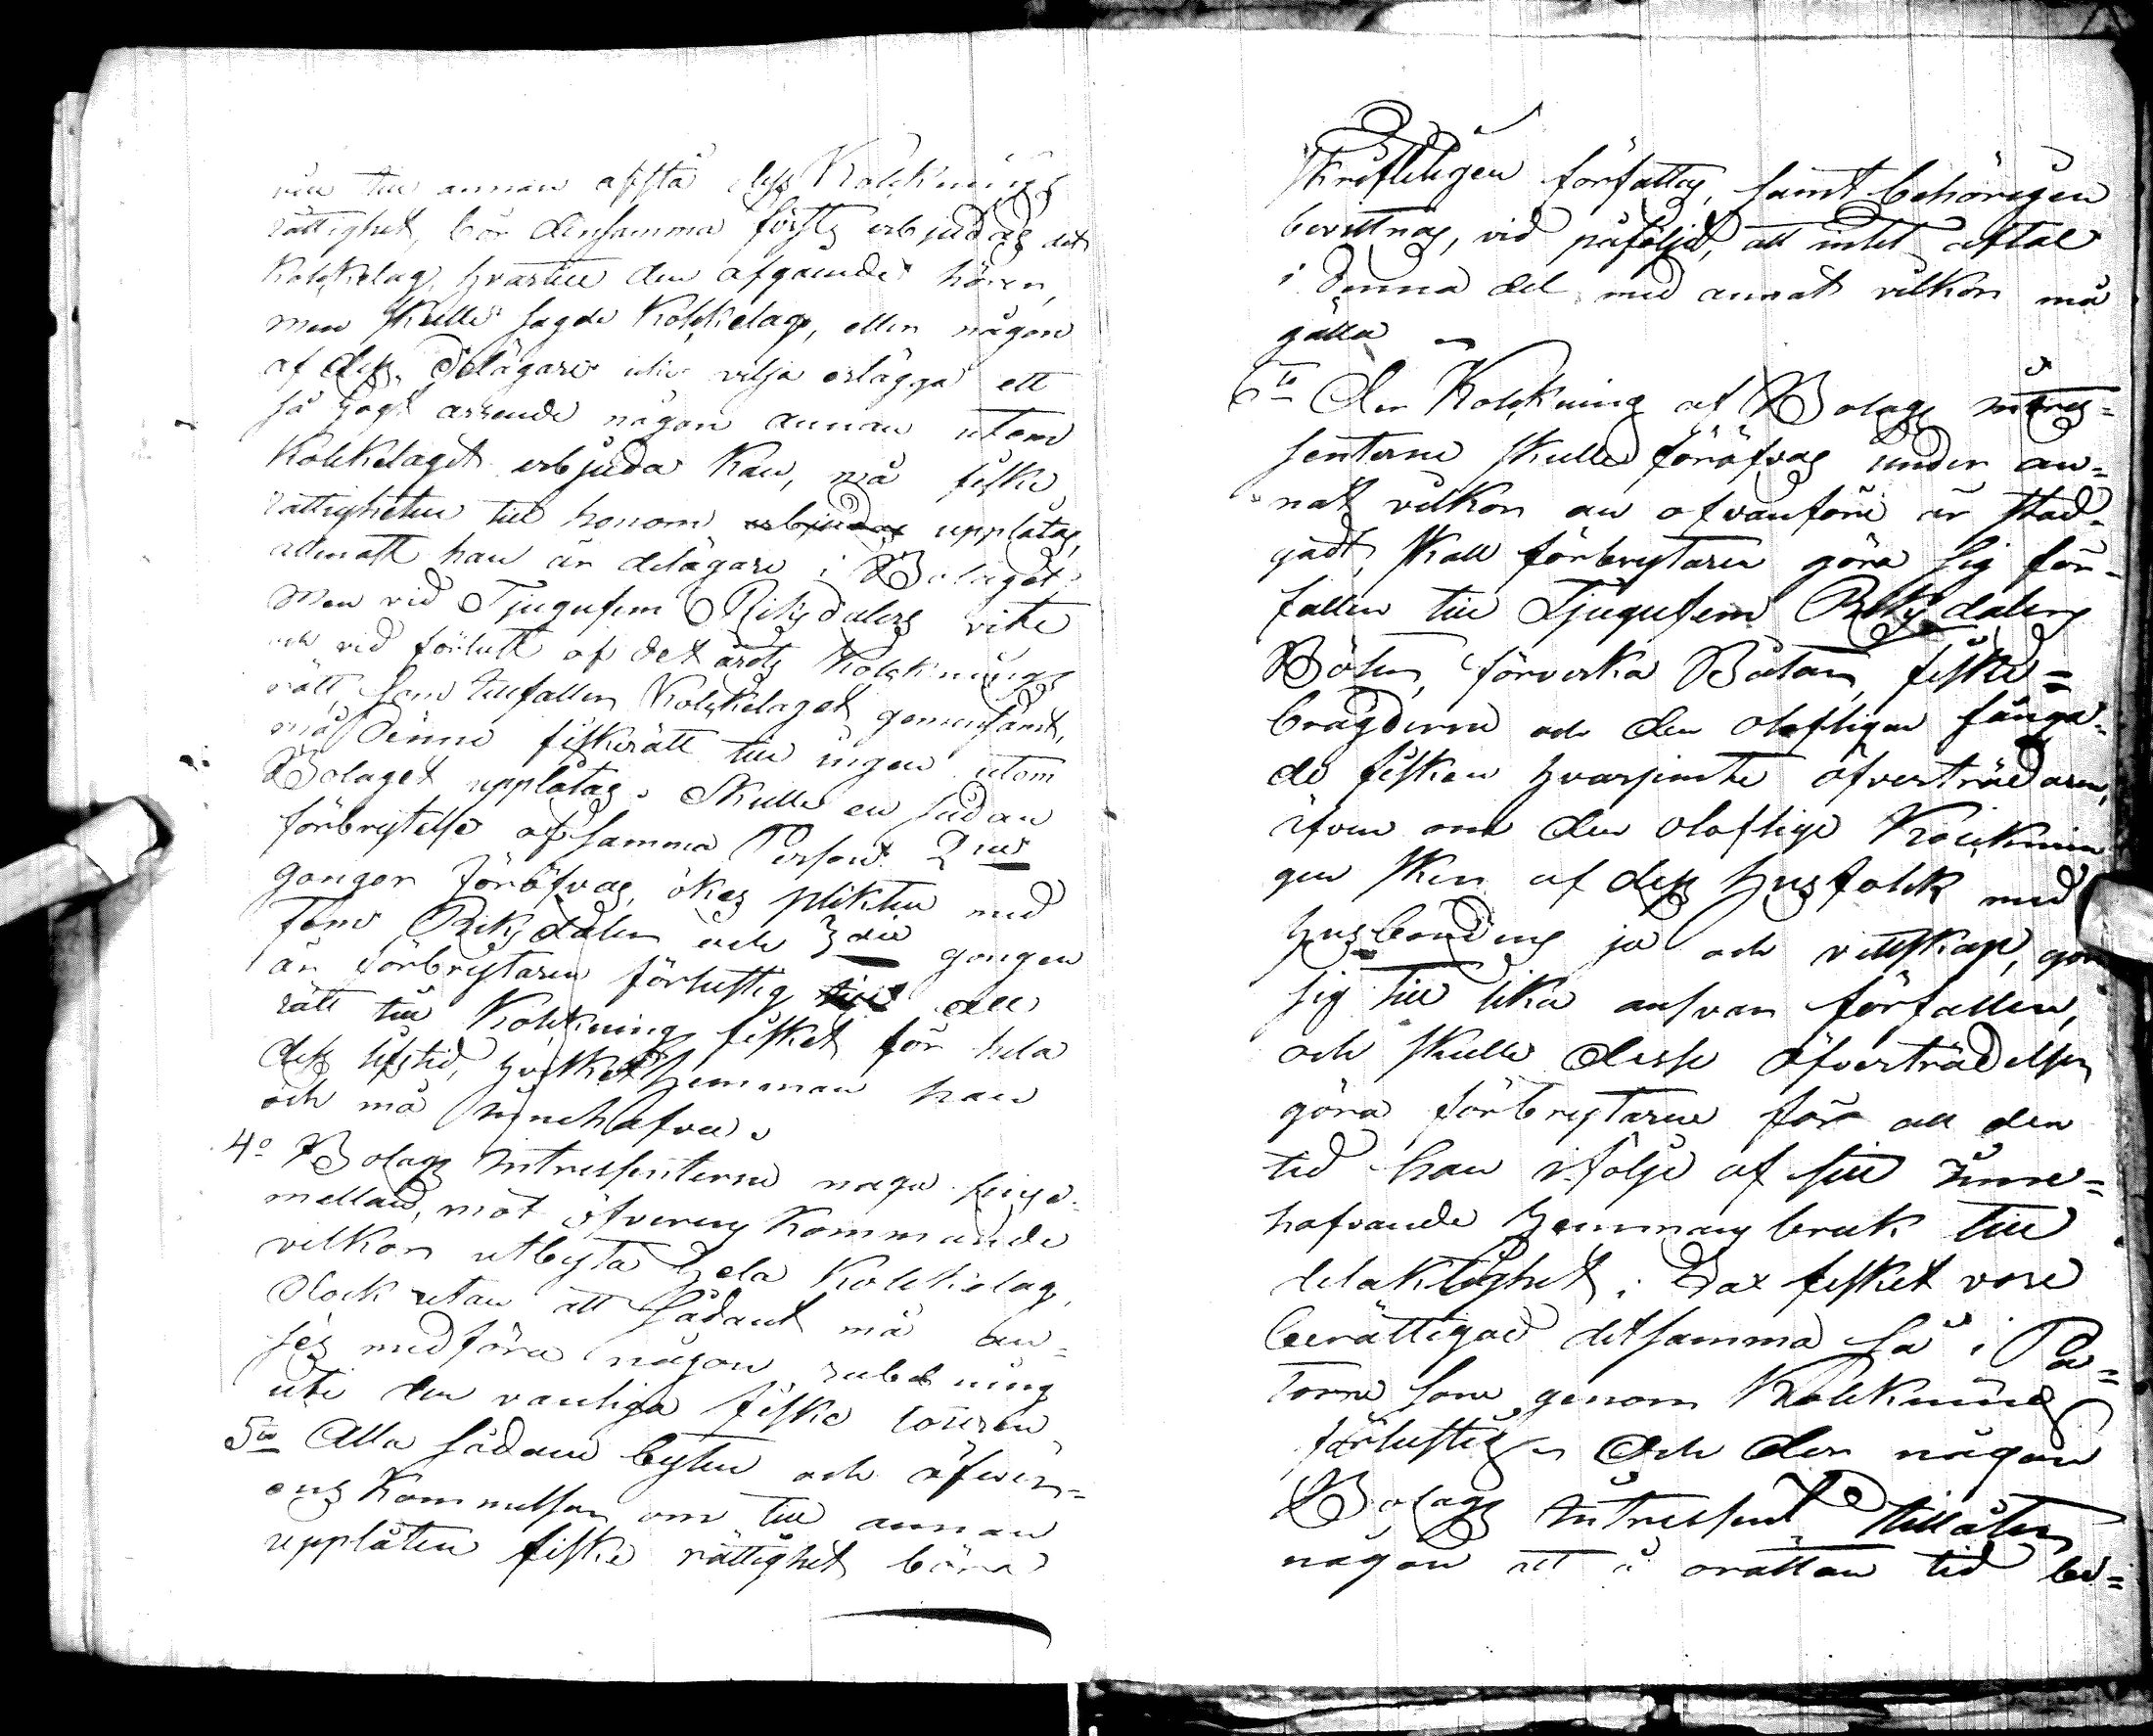 till annan afstå dess Kolknings
rättighet, bör densamma förste erbjudas det
Kolkelag, hvartill den afgående hörer,
men skulle sagde Kolkelag, eller någon
af dess Delägare icke vilja erlägga ett
så högt arrende någon annan utom
Kolkelaget erbjuda kan, må fiske
rättigheten till honom erbjudas upplåtas,
allenast han är delägare i Bolaget
Men vid Tjugufem Riksdalers vite
och vid förlust af det årets Kolknings
rätt, som tillfaller Kolkelaget gemensamt,
må denne fiskerätt till ingen utom
Bolaget upplåtas. Skulle en sådan
förbrytelse af samma Person 2ne
gånger föröfvas, ökes plikten med
Fem Riksdaler och 3die gången
är förbrytaren förlustig till all
rätt till Kolknings fisket för hela
dess lifstid, hvilket Hemman han
och må innehafva.
4o Bolags Intressenterne måga sins
mellan, mot öfverens kommande
vilkor utbyta hela Kolkelag,
dock utan att sådant må an=
ses medföra någon rubbning
uti den vanliga fiske touren
5to Alla sådane byten och öfver=
ens kommelser om till annan
upplåten fiske rättighet böra
Skrifteligen författas, samt behörigen
bevittnas, vid påföljd, att intet aftal
i denna del med annat vilkor må
gälla
6to Der Kolkning af Bolags intres=
senterne skulle föröfvas under an=
nat vilkor än ofvanföre är stad=
gadt, skall förbrytaren göra sig för=
fallen till Tjugufem Riksdalers
Böter, förverka Båtar, fiske=
bragderne och den olofligen fånga=
de fisken hvarjemte öfverträdaren,
äfven om den oloflige Kolknin
gen sker af dess husfolk med
husbondens ja och vettskap, gör
sig till lika ansvar förfallen,
och skulle desse öfverträdelser
göra förbrytarne för all den
tid han i följe af sitt inne=
hafvande Hemmans bruk till
delaktighet i Lax fisket vore
berättigad detsamma så i Pa=
torne som genom Kolkning
förlustig. Och der någon
Bolags Intressent tillåter
någon att å orättan tid be=